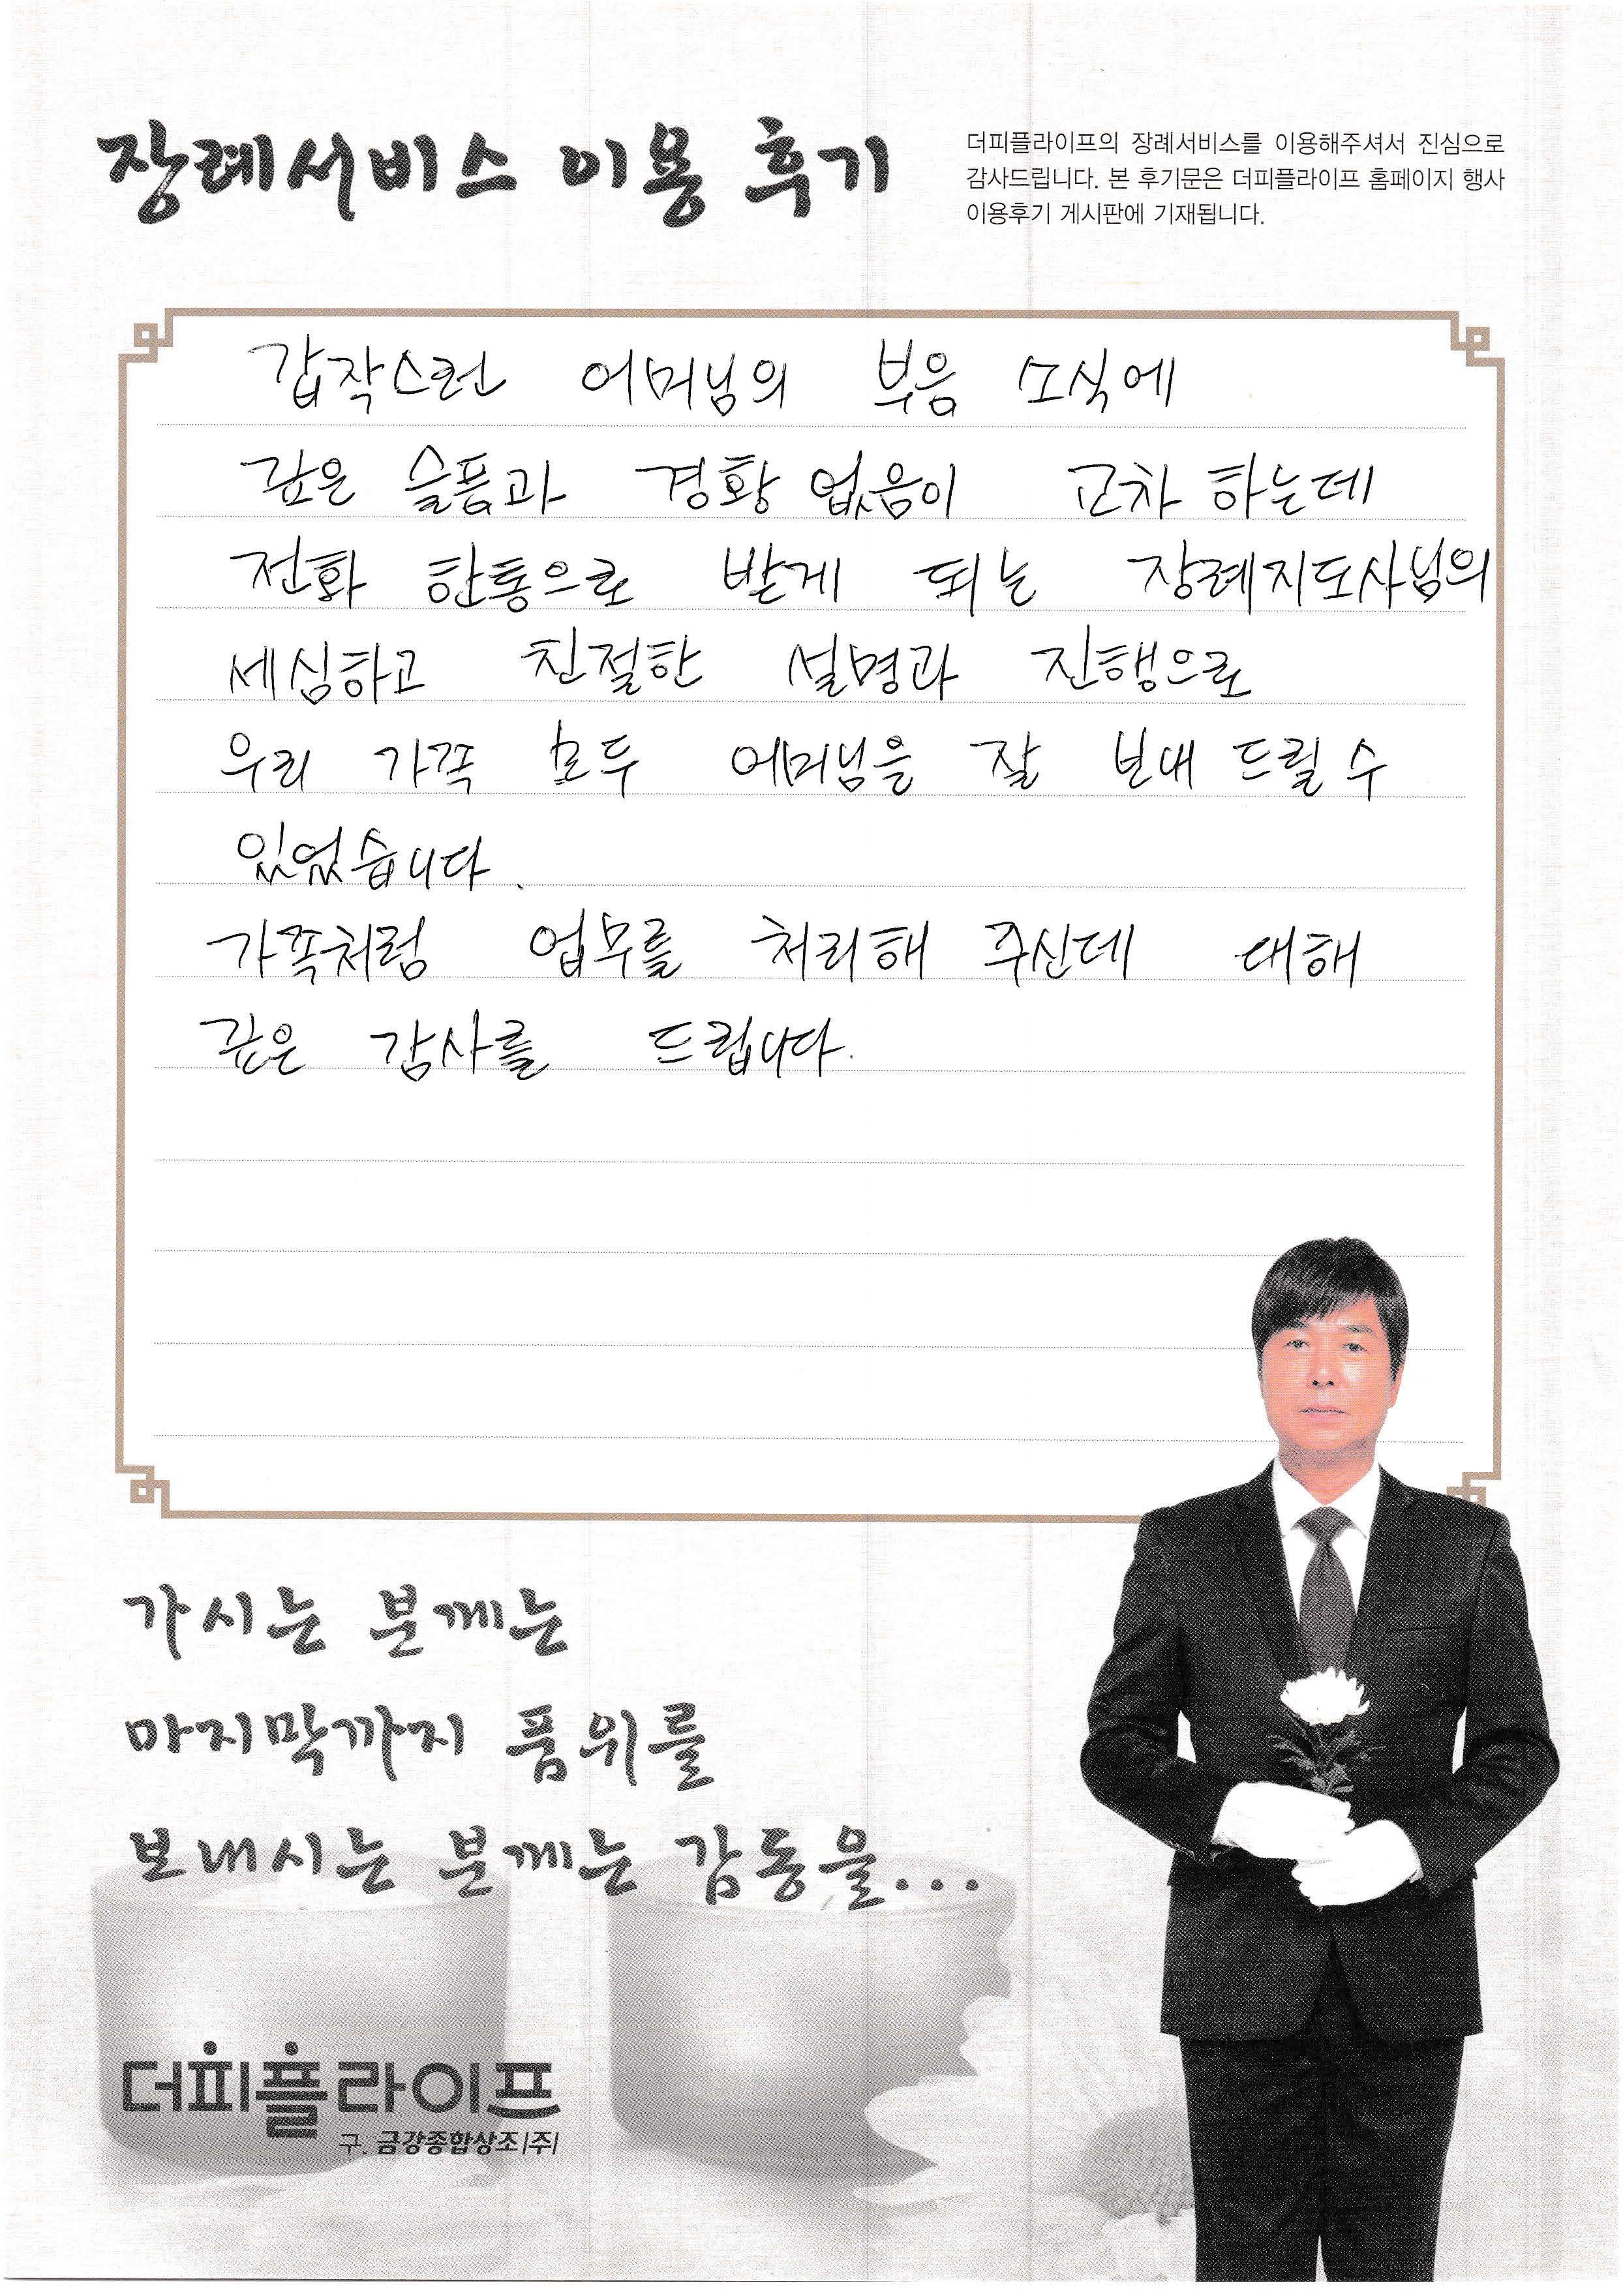 장례서비스 이용 후기
더피플라이프의 장례서비스를 이용해주셔서 진심으로
감사드립니다. 본 후기문은 더피플라이프 홈페이지 행사
이용후기 게시판에 기재됩니다.
갑작스런 어머님의 부음 소식에
깊은 슬픔과 경황 없음이 교차 하는데
전화 한통으로 받게 되는 장례지도사님의
세심하고 친절한 설명과 진행으로
우리 가족 모두 어머님을 잘 보내 드릴 수
있었습니다.
가족처럼 업무를 처리해 주신데 대해
깊은 감사를 드립니다.
가시는 분께는
마지막까지 품위를
보내시는 분께는 감동을...
더피플라이프
구. 금강종합상조|주|